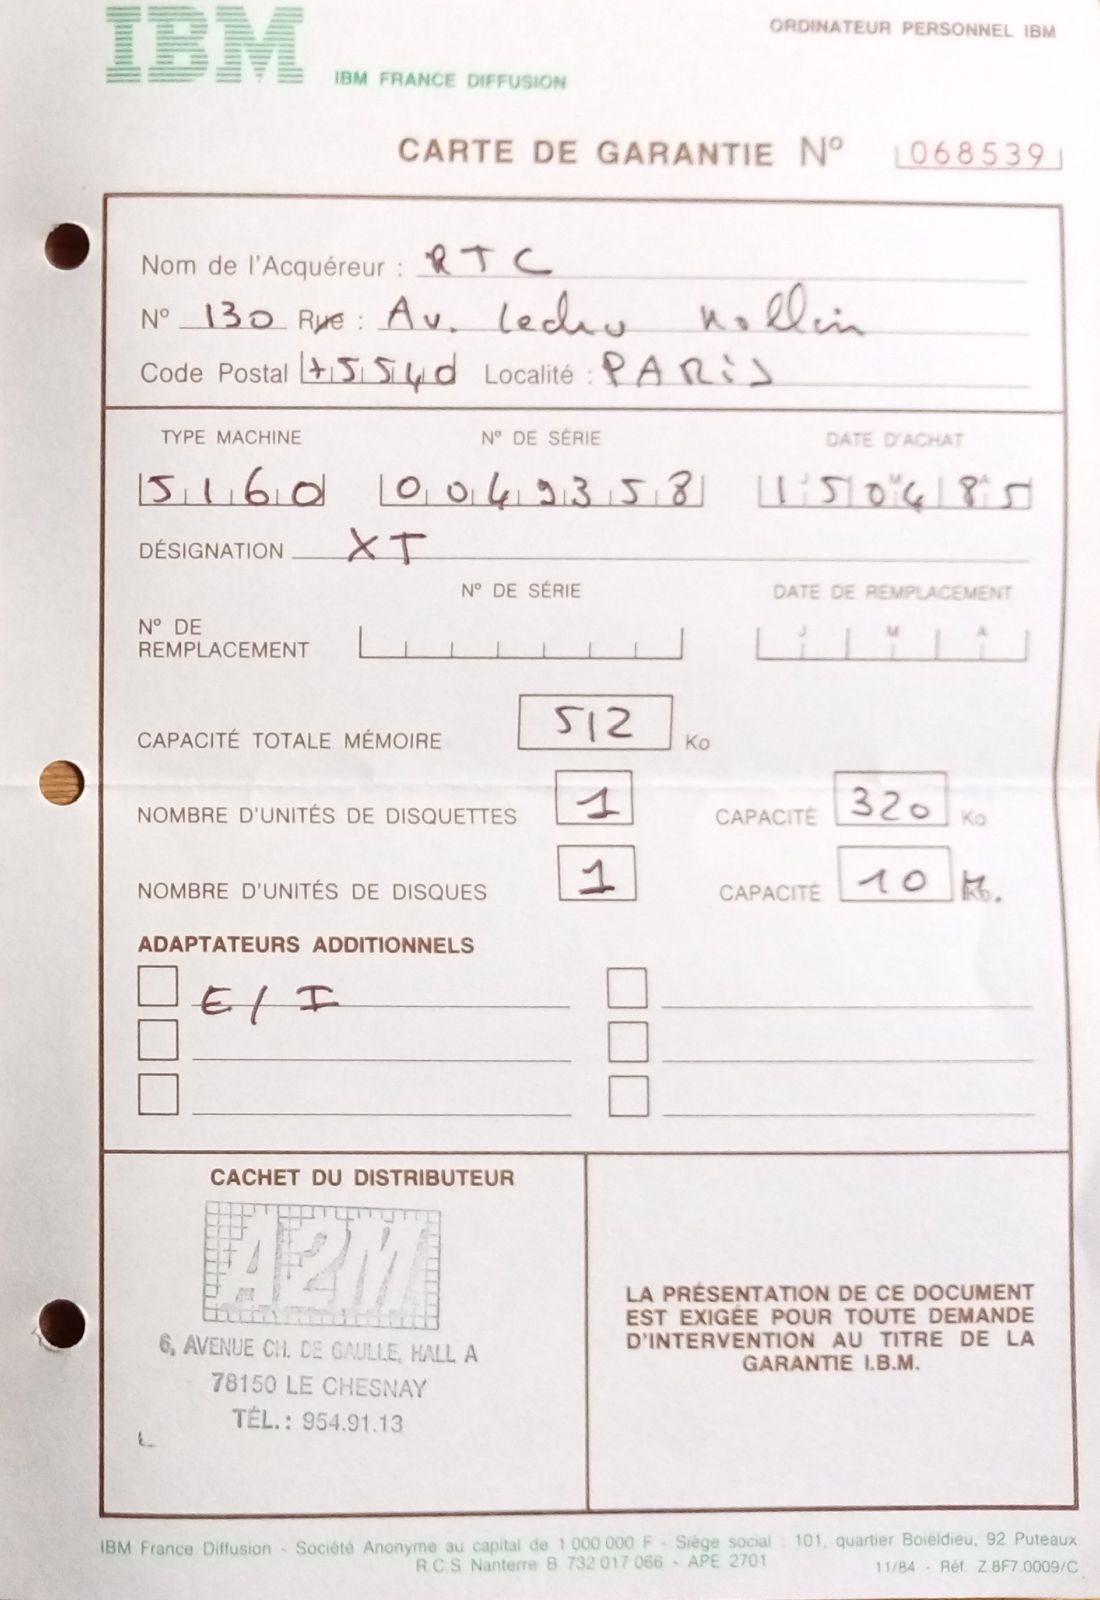 IBM
ORDINATEUR PERSONNEL IBM
IBM FRANCE DIFFUSION
CARTE DE GARANTIE Nº 068539
Nom de l'Acquéreur : RTC
Nº 130 Rue : Av. Ledru Rollin
Code Postal 75540 Localité : PARIS
TYPE MACHINE Nº DE SÉRIE DATE D'ACHAT
5160 0049358 150485
DÉSIGNATION XT
Nº DE SÉRIE DATE DE REMPLACEMENT
Nº DE
REMPLACEMENT J M A
CAPACITÉ TOTALE MÉMOIRE 512 Ko
NOMBRE D'UNITÉS DE DISQUETTES 1 CAPACITÉ 320 Ko
NOMBRE D'UNITÉS DE DISQUES 1 CAPACITÉ 10 M.
ADAPTATEURS ADDITIONNELS
E/I
CACHET DU DISTRIBUTEUR
A2M
6, AVENUE CH. DE GAULLE, HALL A
78150 LE CHESNAY
TÉL.: 954.91.13
LA PRÉSENTATION DE CE DOCUMENT
EST EXIGÉE POUR TOUTE DEMANDE
D'INTERVENTION AU TITRE DE LA
GARANTIE I.B.M.
IBM France Diffusion - Société Anonyme au capital de 1 000 000 F - Siège social : 101, quartier Boiëldieu, 92 Puteaux
R.C.S Nanterre B 732 017 066 - APE 2701
11/84 - Réf. Z.8F7.0009/C